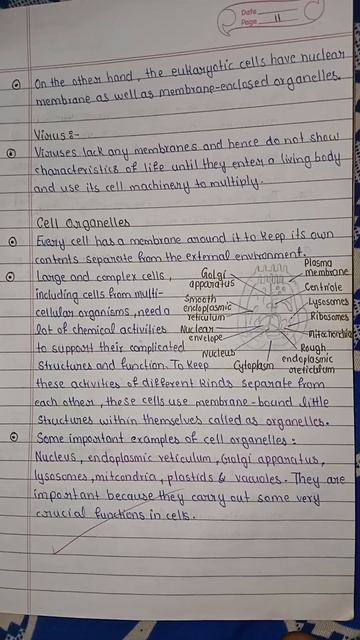 Date
Page 11
On the other hand, the eukaryotic cells have nuclear
membrane as well as membrane-enclosed organelles.
Virus:-
Viruses lack any membranes and hence do not show
characteristics of life until they enter a living body
and use its cell machinery to multiply.
Cell Organelles
Every cell has a membrane around it to keep its own
contents separate from the external environment.
Large and complex cells,
including cells from multi-
cellular organisms, need a
lot of chemical activities
to support their complicated
structures and function. To keep
these activities of different kinds separate from
each other, these cells use membrane-bound little
structures within themselves called as organelles.
Golgi
apparatus
Smooth
endoplasmic
reticulum
Nuclear
envelope
Nucleus
Cytoplasm
Plasma
membrane
Centriole
Lysosomes
Ribosomes
Mitochondria
Rough
endoplasmic
reticulum
Some important examples of cell organelles :
Nucleus, endoplasmic reticulum, Golgi apparatus,
lysosomes, mitcondria, plastids & vacuoles. They are
important because they carry out some very
crucial functions in cells.